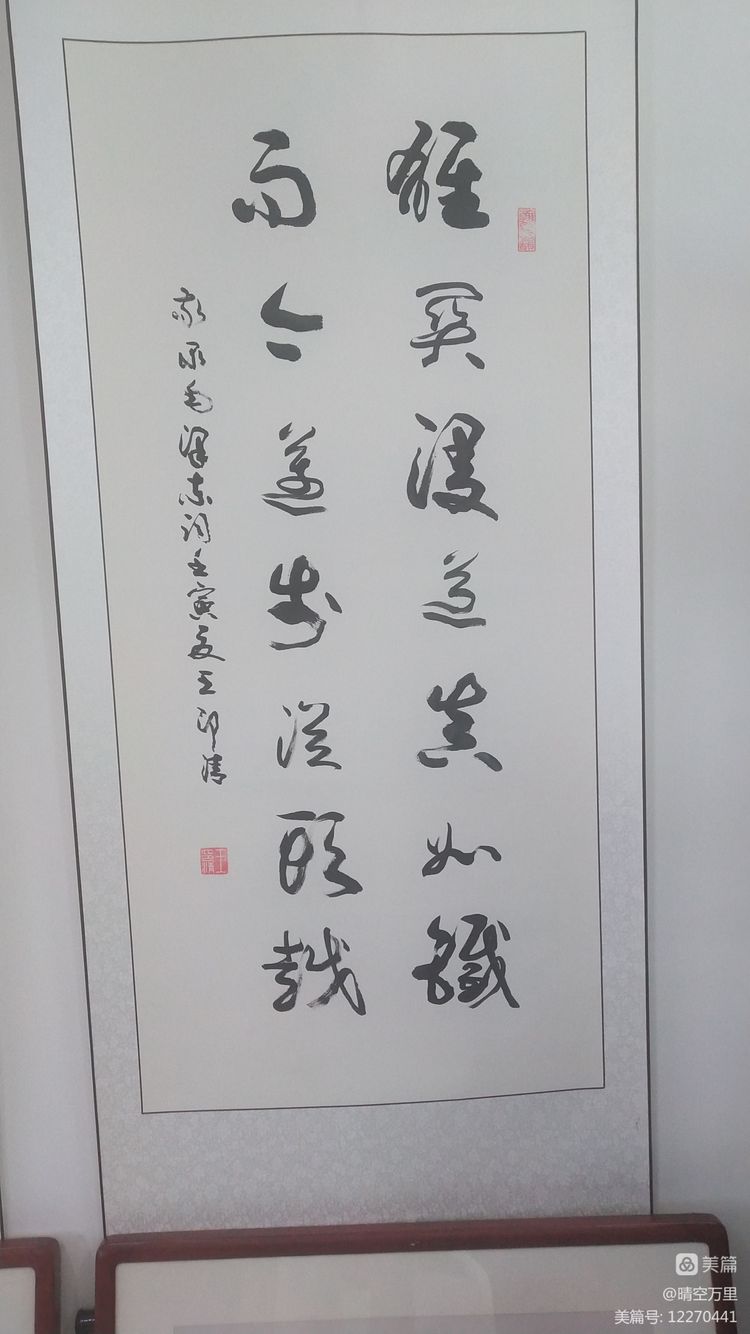 雄關漫道真如鐵
而今邁步從頭越
敬录毛澤东词壬寅夏王印清
美篇
@晴空万里
美篇号: 12270441